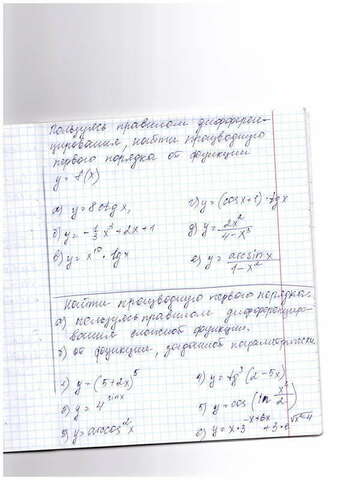 Пользуясь правилом дифферен-
цирования, найти производную
первого порядка от функции
y = f(x)
а) y = 8 ctg x,
г) y = (cos x + 1) · tg x
б) y = -1/3 x³ + 2x + 1
д) y = 2x²/(4 - x³)
в) y = x¹⁰ · tg x
е) y = arcsin x/(1 - x²)
Найти производную первого порядка:
а) пользуясь правилом дифференциро-
вания сложной функции.
б) от функции, заданной параметрически
1) y = (5 + 2x)⁵
4) y = tg³(2 - 5x)
2) y = 4^(sin x)
5) y = cos(ln x²/2)
3) y = arccos² x
6) y = x · 3^(-x+6x)